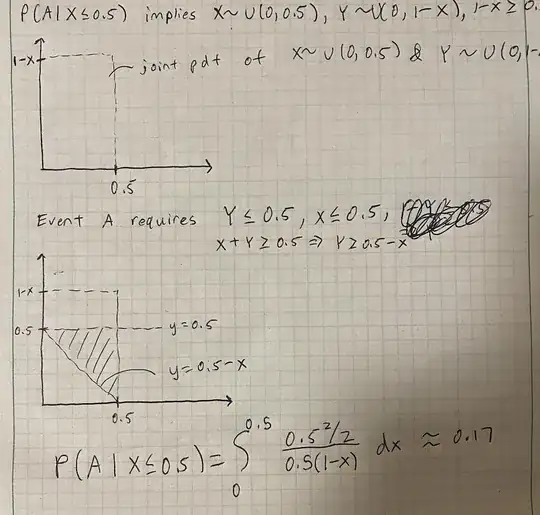 P(A|X≤0.5) implies X~U(0,0.5), Y~U(0,1-X), 1-X≥0.
1-X
joint pdf of X~U(0,0.5) & Y~U(0,1-
0.5
Event A requires Y≤0.5, X≤0.5,
X+Y≥0.5 ⇒ Y≥0.5-X
1-X
0.5
y=0.5
y=0.5-X
0.5
P(A|X≤0.5)=∫₀^0.5 (0.5²/2)/(0.5(1-X)) dx ≈ 0.17